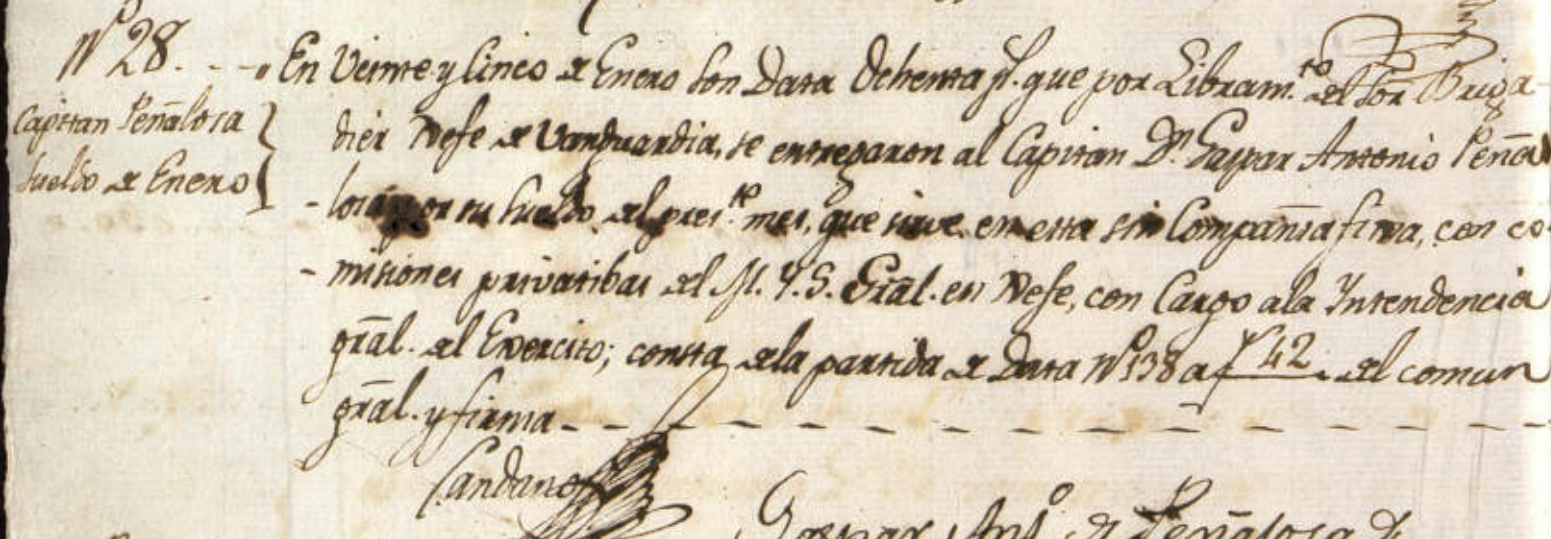 Nº 28. - - „ En Veinte y Cinco de Enero Son Data Ochenta ps. que por Libramto. del Sor Briga-
Capitan Peñalosa
Sueldo de Enero
dier Xefe de Vanguardia, se entregaron al Capitan Dn. Gaspar Antonio Peña
- losa por su Sueldo del preste. mes, que sirve en esta sin Compañia firma, con co-
- misiones privatibas del M. Y. S. Gral. en Xefe, con Cargo ala Yntendencia
gral. del Exercito; consta dela partida de Data Nº 138 a f 42 del comun
gral. y firma
Candano
Gaspar Antº de Peñalosa